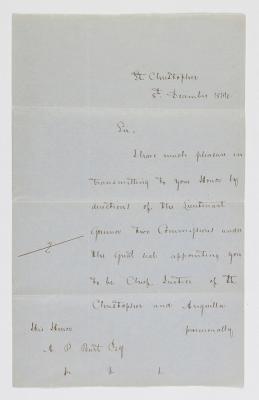 St Christopher
8th December
Sir,
I have much pleasure in
transmitting to your Honor by
directions of the Lieutenant
Governor two Commissions under
the Great Seal appointing you
to be Chief Justice of St
Christopher and Anguilla
provisionally
His Honor
A. P. Burt Esq